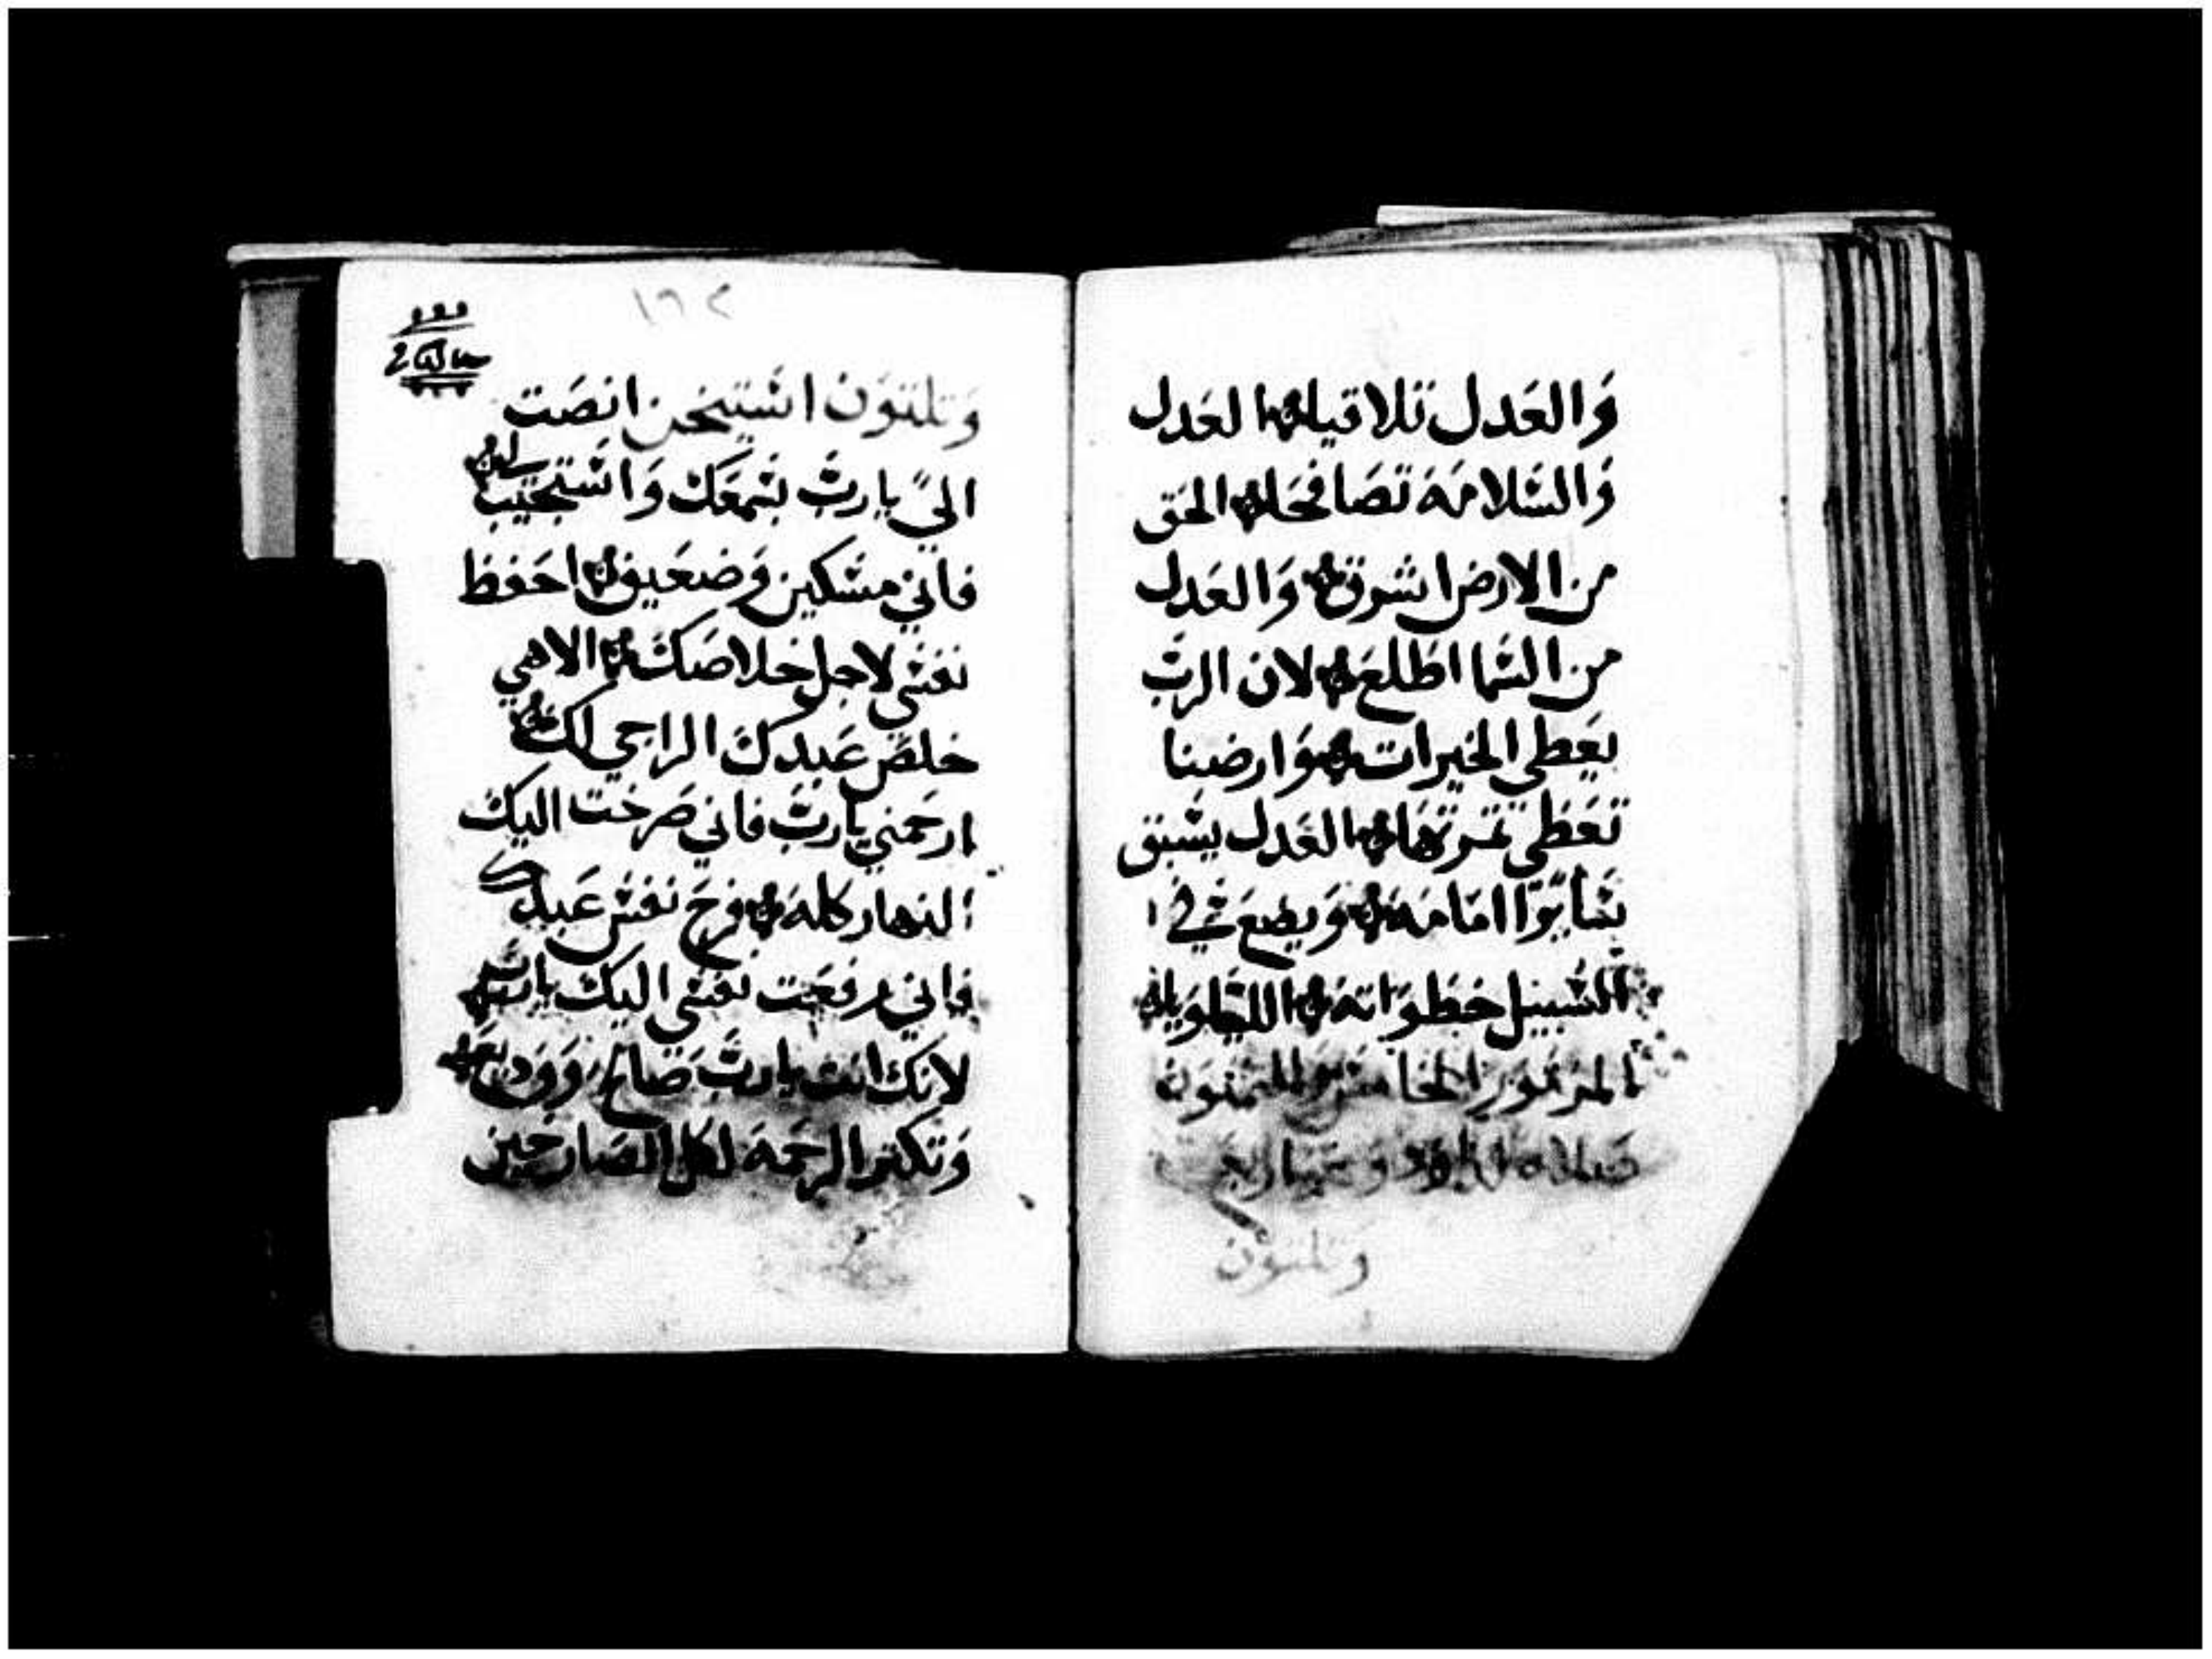 وَالعَدل تلاقيا العَدل
وَالسَّلامَة تصَافحَا الحَق
من الارض اشرق وَالعَدل
من السَّما اطَّلعَ لان الربّ
يعَطي الخيرات وَارضنا
تعَطي ثمرتهَا العَدل يسْبق
امَامَه وَيضع في
السَّبيل خطوَاته الليلويا
المزمور الخامس والثمنون
وتلتون
١٦٢
وَتلتوَن اسْتيخن انصَت
اليَّ يا ربّ بسْمعَك وَاسْتجيب لي
فاني مسْكين وَضعَيف احَفظ
نفسْي لاجل خلاصَك الاهي
خلصَ عَبدكَ الراجي لك
ارحَمني يا ربّ فاني صَرخت اليك
النهار كله فرحَ نفسْ عَبدك
فاني رفعَت نفسْي اليك يا ربّ
لانك انت يا ربّ صَالح وَوَديع
وَتكتر الرحَمة لكل الصَارخين